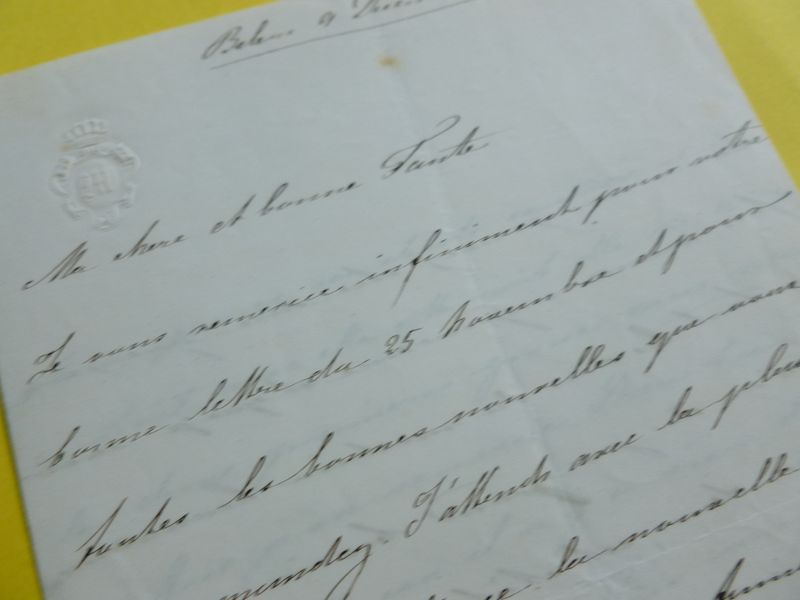 Belem 9
Ma chere et bonne Tante
Je vous remercie infiniment pour votre
bonne lettre du 25 novembre et pour
toutes les bonnes nouvelles que vous
mandez. J'attends avec la plus
la nouvelle